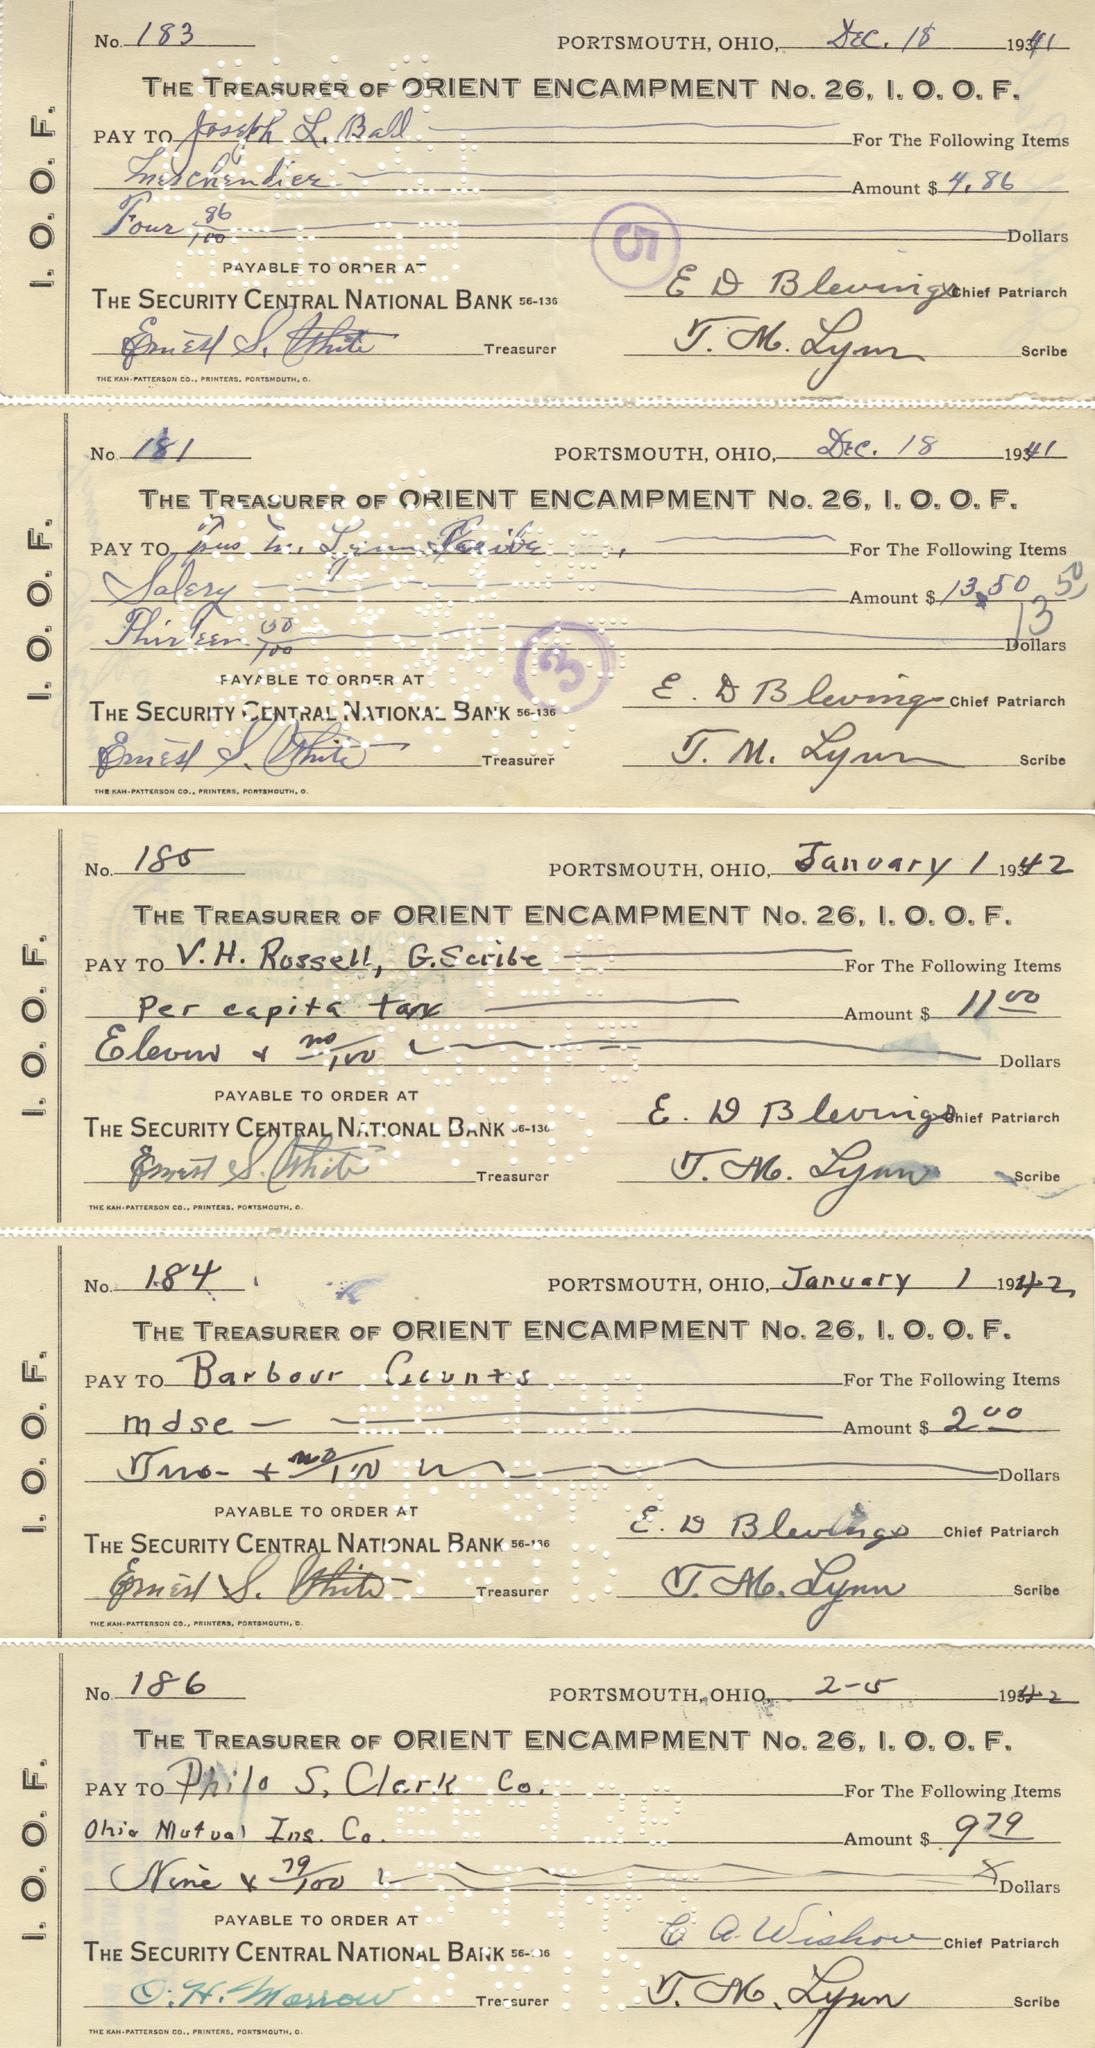 I. O. O. F.
No. 183 PORTSMOUTH, OHIO, Dec. 18 1941
THE TREASURER OF ORIENT ENCAMPMENT No. 26, I. O. O. F.
PAY TO Joseph L. Ball For The Following Items
Merchendier Amount $ 4.86
Four 86/100 Dollars
5
PAYABLE TO ORDER AT
E D Blevings Chief Patriarch
THE SECURITY CENTRAL NATIONAL BANK 56-136
Ernest S. White Treasurer T. M. Lynn Scribe
THE KAH-PATTERSON CO., PRINTERS, PORTSMOUTH, O.
I. O. O. F.
No. 181 PORTSMOUTH, OHIO, Dec. 18 1941
THE TREASURER OF ORIENT ENCAMPMENT No. 26, I. O. O. F.
PAY TO M. Lynn Scribe For The Following Items
Salery Amount $ 13.50 13 50
Thirteen 50/100 Dollars
3
PAYABLE TO ORDER AT
E. D Blevings Chief Patriarch
THE SECURITY CENTRAL NATIONAL BANK 56-136
Ernest S. White Treasurer T. M. Lynn Scribe
THE KAH-PATTERSON CO., PRINTERS, PORTSMOUTH, O.
I. O. O. F.
No. 185 PORTSMOUTH, OHIO, January 1 1942
THE TREASURER OF ORIENT ENCAMPMENT No. 26, I. O. O. F.
PAY TO V. H. Rossell, G. Scribe For The Following Items
Per capita tax Amount $ 11 00
Eleven & no/100 Dollars
PAYABLE TO ORDER AT
E. D Blevings Chief Patriarch
THE SECURITY CENTRAL NATIONAL BANK 56-136
Ernest S. White Treasurer T. M. Lynn Scribe
THE KAH-PATTERSON CO., PRINTERS, PORTSMOUTH, O.
I. O. O. F.
No. 184 PORTSMOUTH, OHIO, January 1 1942
THE TREASURER OF ORIENT ENCAMPMENT No. 26, I. O. O. F.
PAY TO Barbour For The Following Items
mdse Amount $ 2 00
Two & no/100 Dollars
PAYABLE TO ORDER AT
E. D Blevings Chief Patriarch
THE SECURITY CENTRAL NATIONAL BANK 56-136
Ernest S. White Treasurer T. M. Lynn Scribe
THE KAH-PATTERSON CO., PRINTERS, PORTSMOUTH, O.
I. O. O. F.
No. 186 PORTSMOUTH, OHIO, 2-5 1942
THE TREASURER OF ORIENT ENCAMPMENT No. 26, I. O. O. F.
PAY TO Philo S. Clark Co. For The Following Items
Ohio Mutual Ins. Co. Amount $ 9 79
Nine & 79/100 Dollars
PAYABLE TO ORDER AT
C A. Wishon Chief Patriarch
THE SECURITY CENTRAL NATIONAL BANK 56-136
O. H. Morrow Treasurer T. M. Lynn Scribe
THE KAH-PATTERSON CO., PRINTERS, PORTSMOUTH, O.